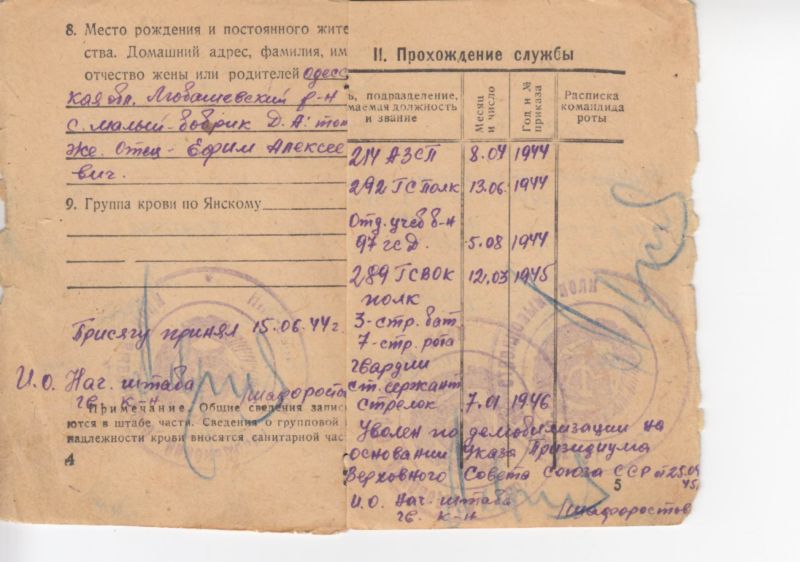 8. Место рождения и постоянного жите
ства. Домашний адрес, фамилия, им
отчество жены или родителей Одесс
кая обл. Любашевский р-н
с. малый-бобрик Д.А: том
же. Отец - Ефим Алексее
вич.
9. Группа крови по Янскому
Присягу принял 15.06.44г.
И.О. Нач. штаба
гв. к-н Шафороста
Примечание. Общие сведения запис
ются в штабе части. Сведения о групповой
надлежности крови вносятся санитарной час
4
II. Прохождение службы
ь, подразделение,
маемая должность
и звание
Месяц
и число
Год и №
приказа
Расписка
командира
роты
214 АЗСП 8.04 1944
292 ГСполк 13.06 1944
Отд. учеб б-н
97 гсд. 5.08 1944
289 ГСВОК 12.03 1945
полк
3-стр. бат.
7-стр. рота
гвардии
ст. сержант
стрелок 7.01 1946
Уволен по демобилизации на
основании Указа Призидиума
Верховного Совета Союза ССР от 25.09
45.
И.О. Нач. штаба
гв. к-н Шафоростов
5